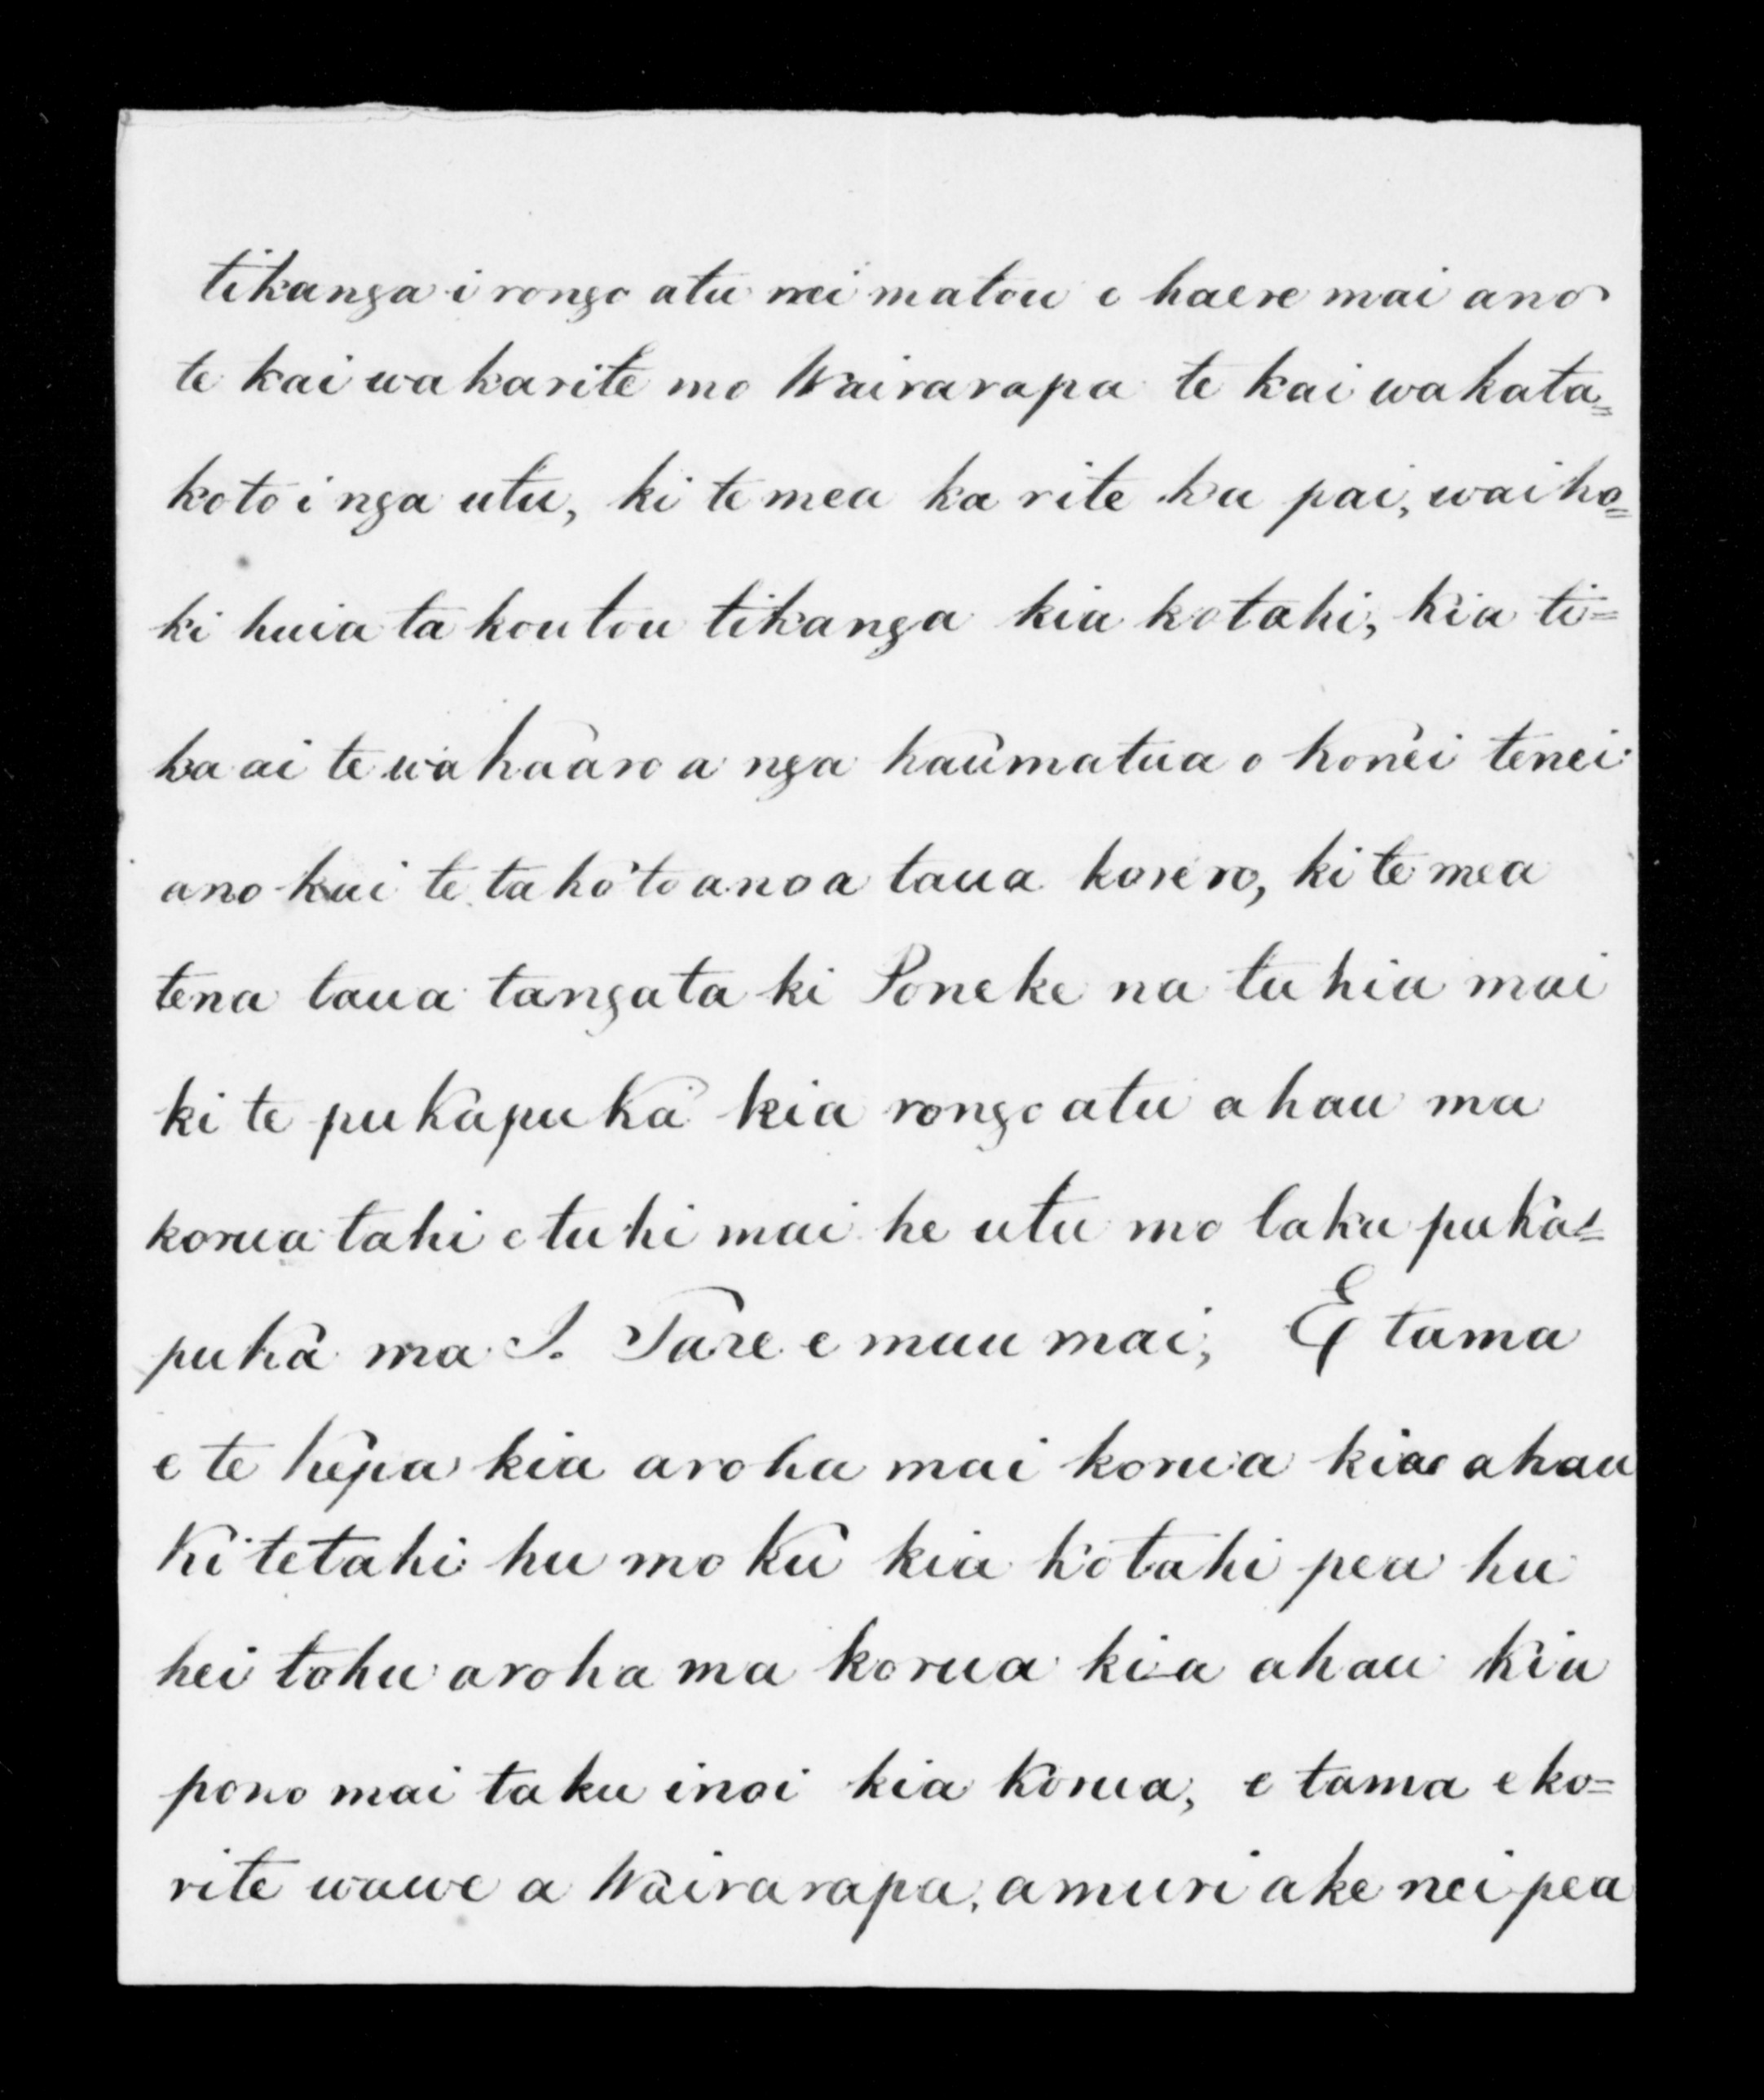 tikanga i rongo atu nei matou e haere mai ano
te kai wakarite mo Wairarapa te kai wakata=
koto i nga utu, ki te mea ka rite ka pai, waiho=
ki huia ta koutou tikanga kia kotahi, kia ti=
ka ai te wakaaro a nga kaumatua o konei tenei
ano kai te takoto ano a taua korero, ki te mea
tena taua tangata ki Poneke na tuhia mai
ki te pukapuka kia rongo atu ahau ma
korua tahi e tuhi mai he utu mo taku puka=
puka ma I. Tare e mau mai, E tama
e te hepa kia aroha mai korua kia ahau
Ki tetahi hu moku kia kotahi pea hu
hei tohu aroha ma korua kia ahau kia
pono mai taku inoi kia korua, e tama e ko=
rite wawe a Wairarapa, amuri ake nei pea